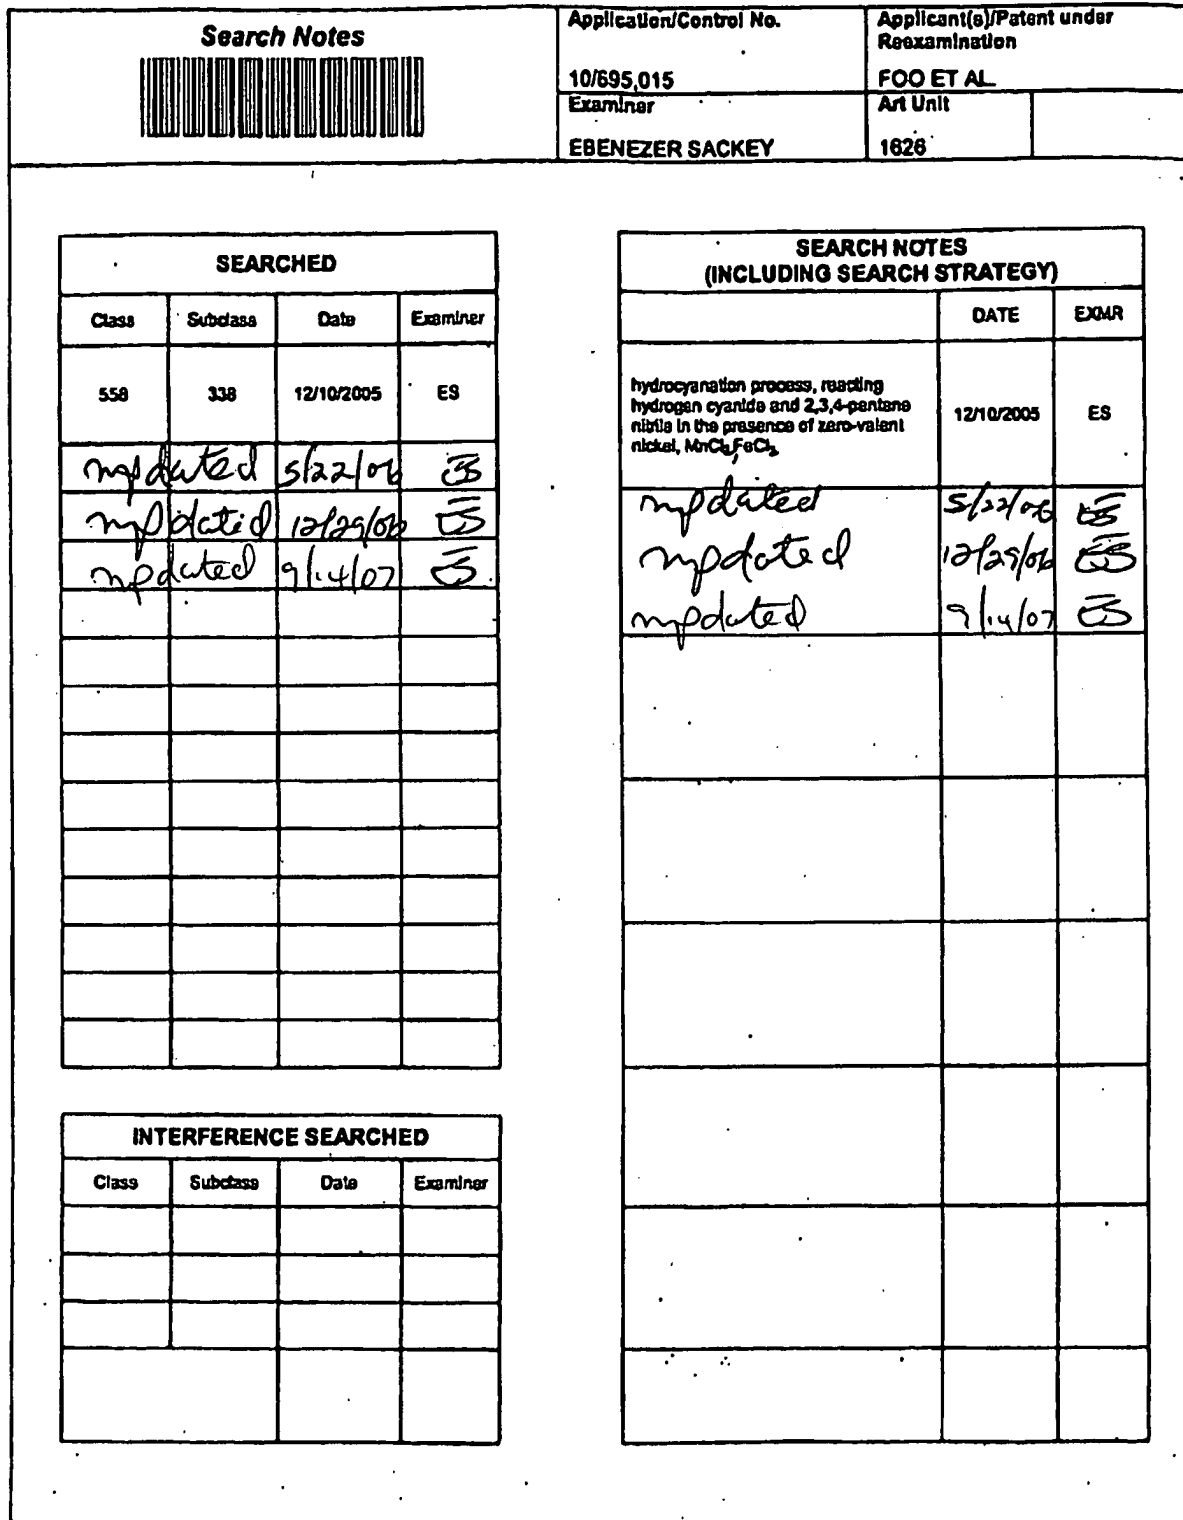 Search Notes
Application/Control No.
10/695,015
Applicant(s)/Patent under
Reexamination
FOO ET AL.
Examiner
EBENEZER SACKEY
Art Unit
1626
SEARCHED
Class Subclass Date Examiner
558 338 12/10/2005 ES
updated 5/22/06 ES
updated 12/29/06 ES
updated 9/14/07 ES
INTERFERENCE SEARCHED
Class Subclass Date Examiner
SEARCH NOTES
(INCLUDING SEARCH STRATEGY)
DATE EXMR
hydrocyanation process, reacting
hydrogen cyanide and 2,3,4-pentane
nitrile in the presence of zero-valent
nickel, MnCl2, FeCl2
12/10/2005 ES
updated 5/22/06 ES
updated 12/29/06 ES
updated 9/14/07 ES